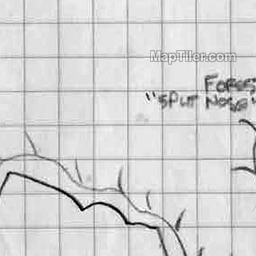 MapTiler.com
FORES
"SPLIT NOSE"